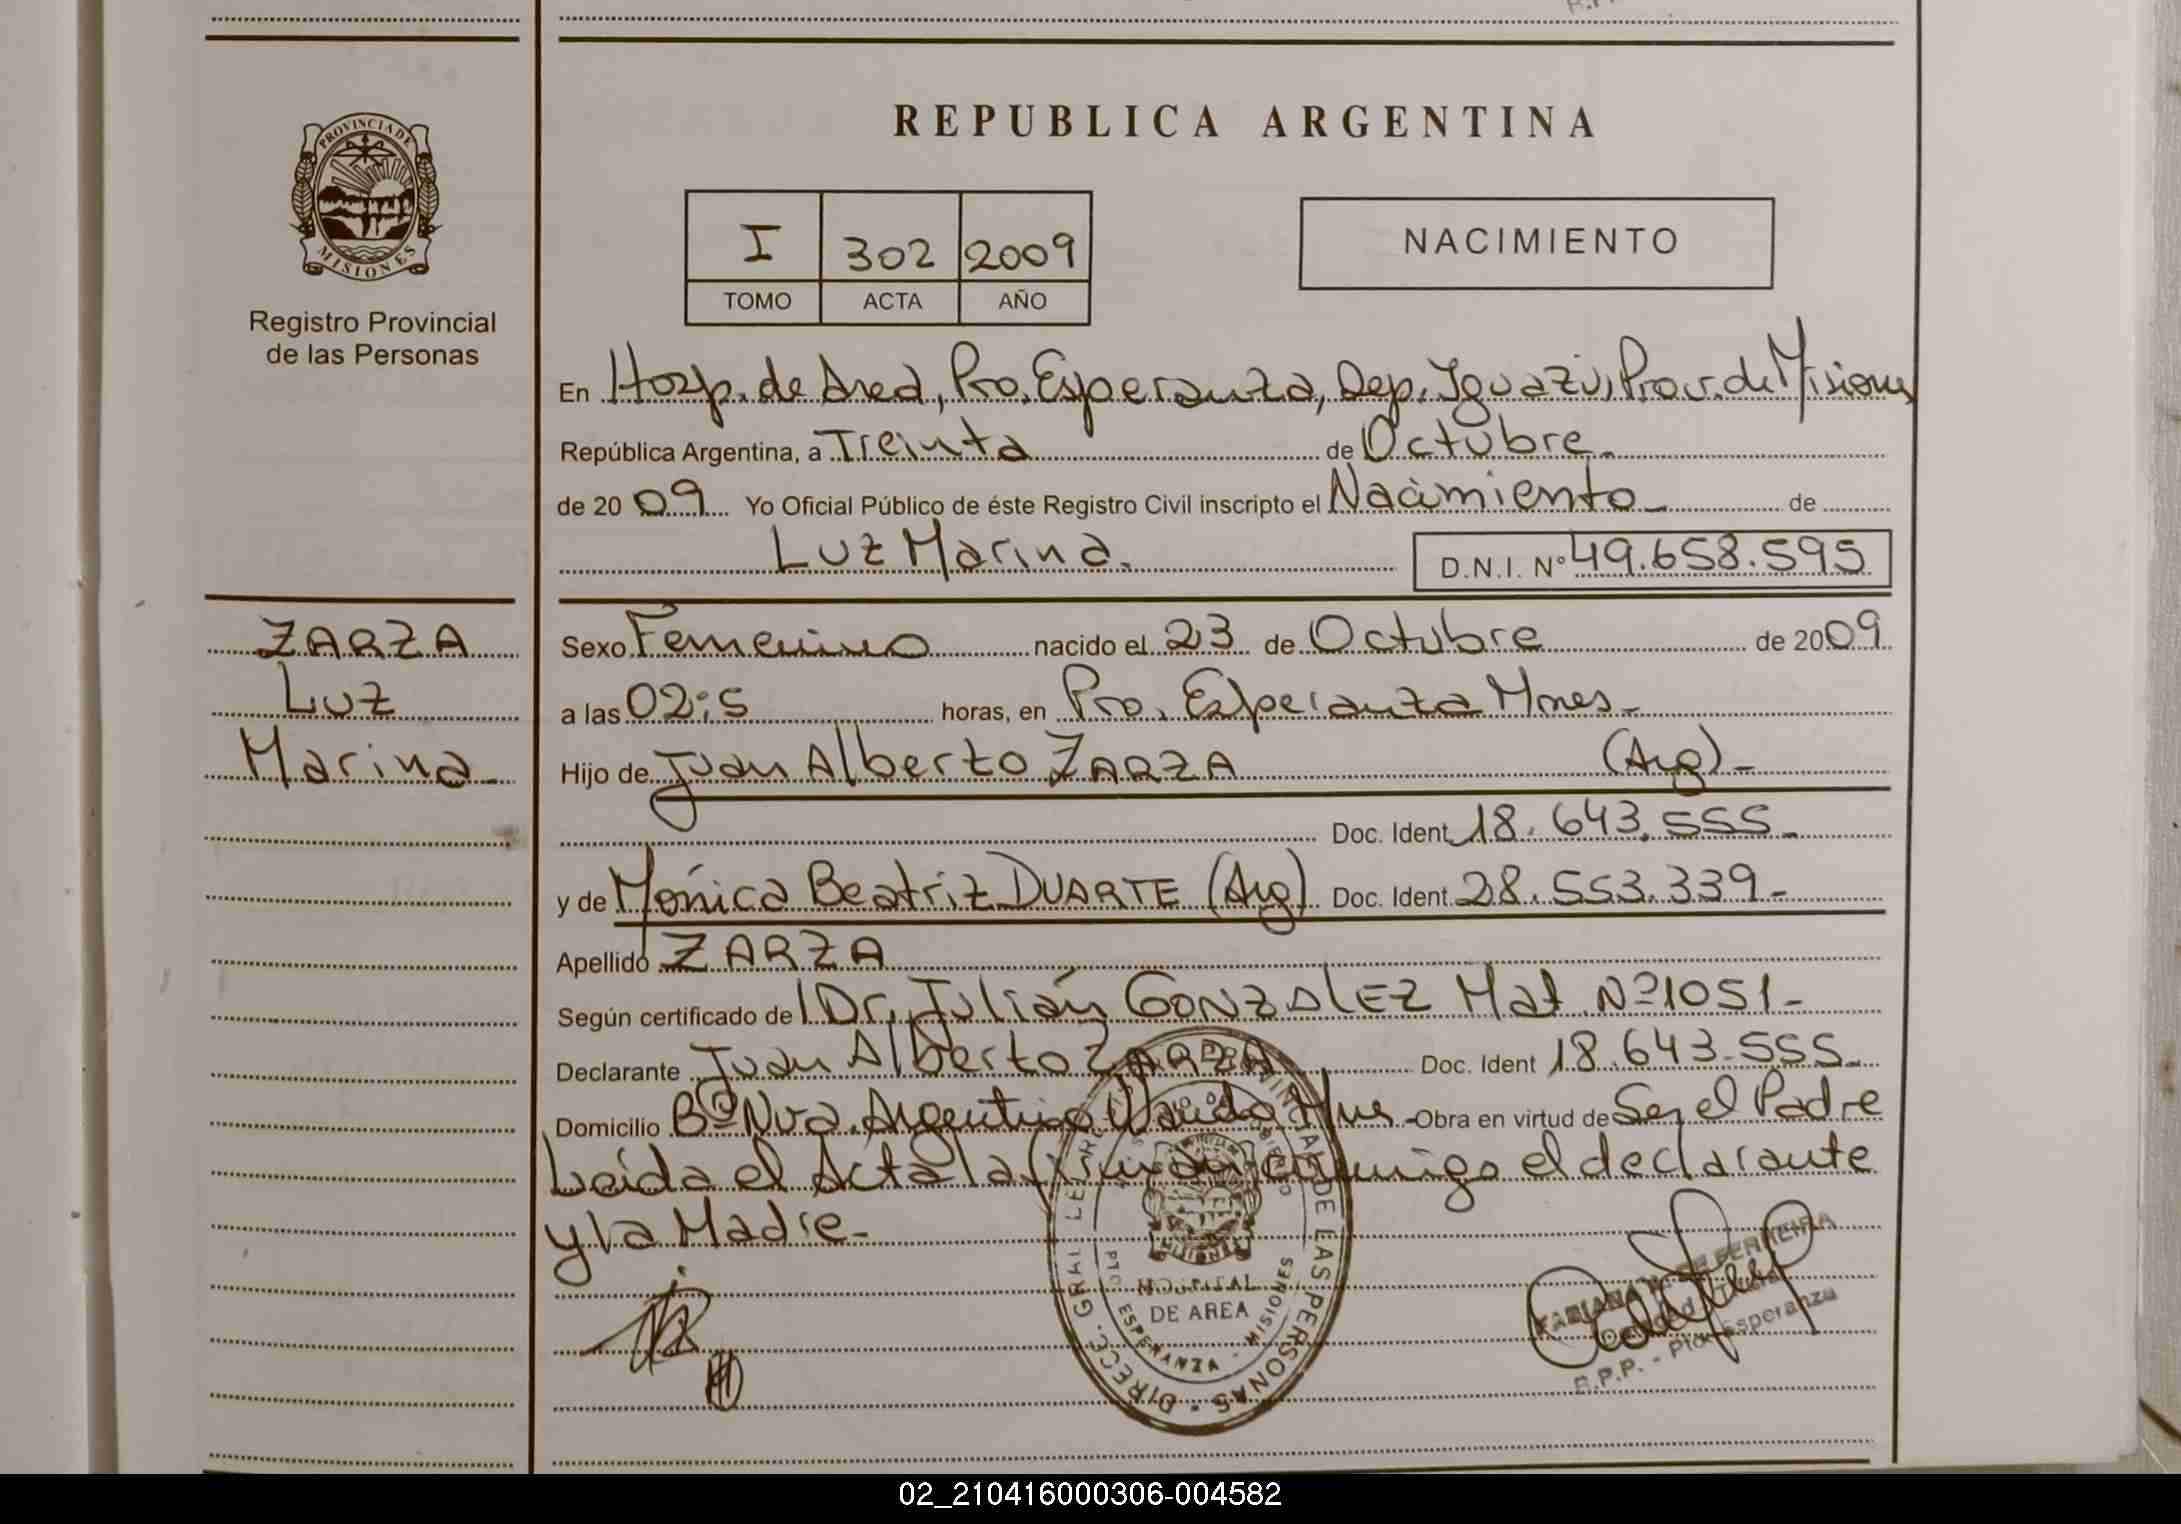 PROVINCIA DE
MISIONES
Registro Provincial
de las Personas
ZARZA
Luz
Marina
REPUBLICA ARGENTINA
I 302 2009
TOMO ACTA AÑO
NACIMIENTO
En Hosp. de Area, Pto. Esperanza, Dep. Iguazú, Prov. de Misiones
República Argentina, a Treinta de Octubre
de 2009 Yo Oficial Público de éste Registro Civil inscripto el Nacimiento de
Luz Marina. D.N.I. Nº 49.658.595
Sexo Femenino nacido el 23 de Octubre de 2009
a las 02:5 horas, en Pto. Esperanza Mnes.
Hijo de Juan Alberto ZARZA (Arg)
Doc. Ident 18.643.555
y de Mónica Beatriz DUARTE (Arg) Doc. Ident. 28.553.339
Apellido ZARZA
Según certificado de Dr. Julián GONZALEZ Mat. Nº 1051
Declarante Juan Alberto ZARZA Doc. Ident 18.643.555
Domicilio Bº Nva. Argentina Wanda Mnes Obra en virtud de Ser el Padre
Leída el Acta la firman conmigo el declarante
y la Madre
HOSPITAL
DE AREA
ESPERANZA - MISIONES
DE LAS PERSONAS - DIRECC. GRAL
FABIANA DE FERREIRA
R.P.P. - Pto. Esperanza
02_210416000306-004582